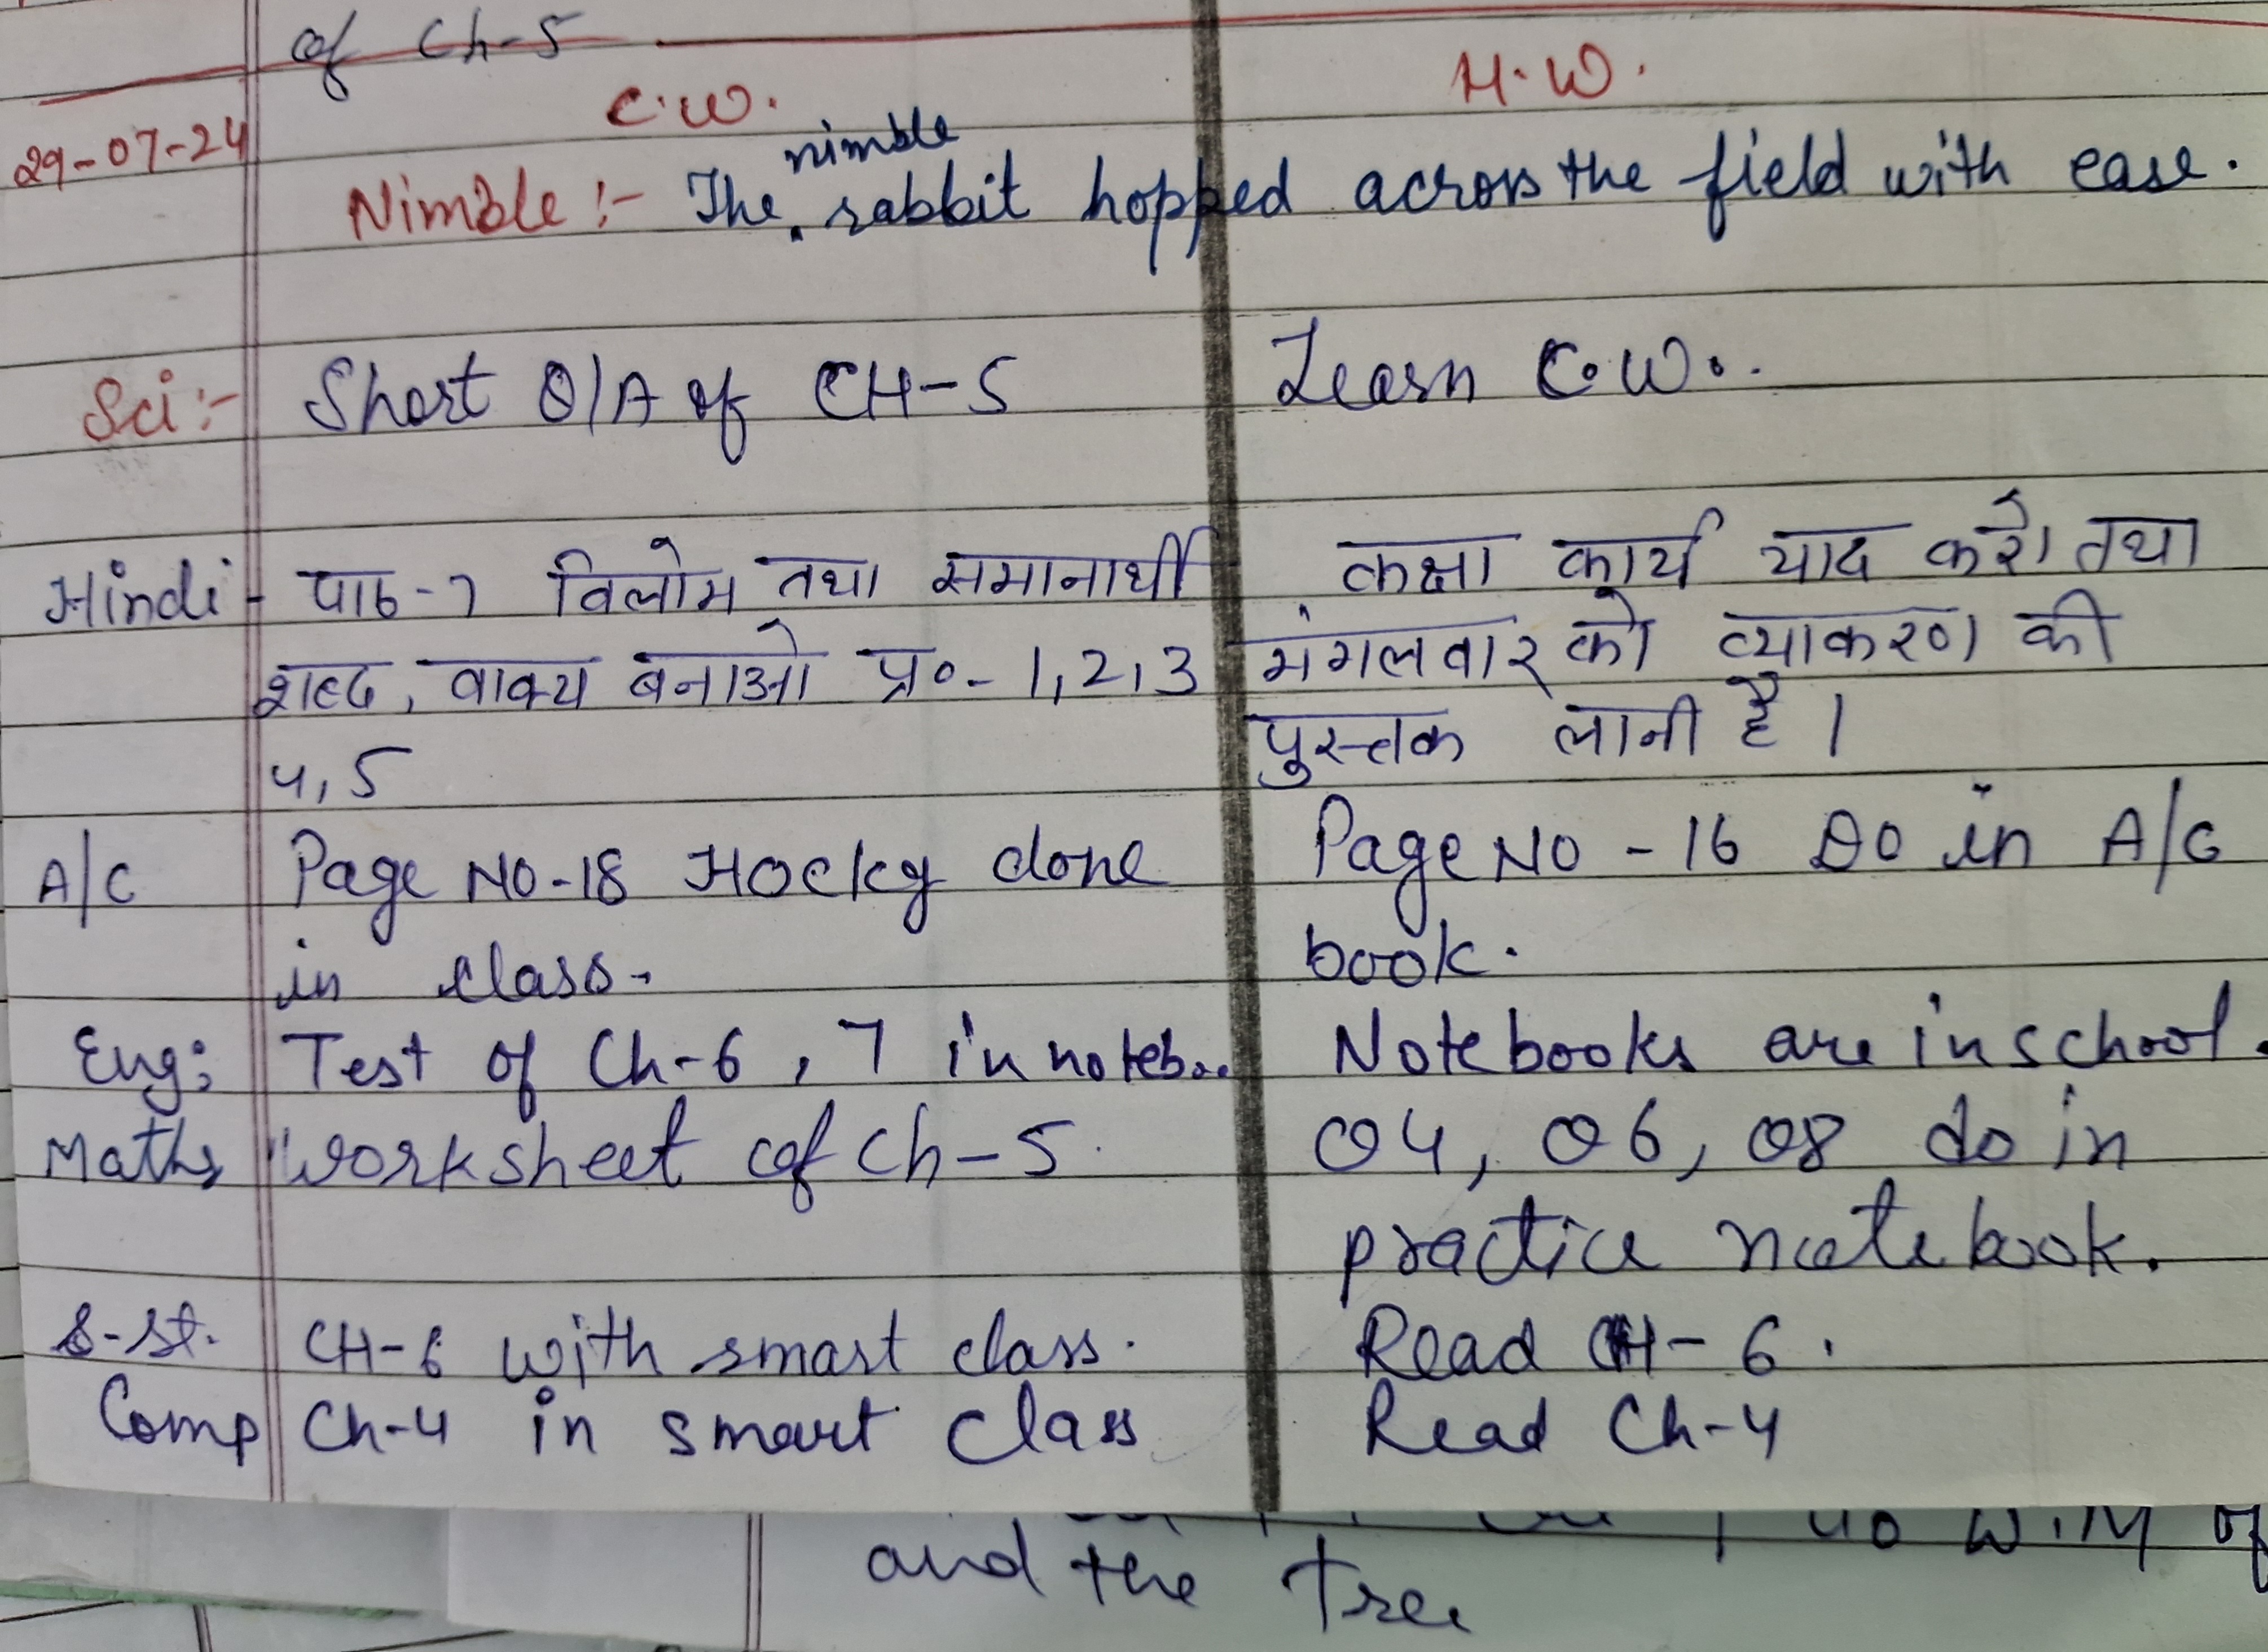 of Ch-5
C.W. H.W.
29-07-24
nimble
Nimble :- The rabbit hopped across the field with ease.
Sci :- Short Q/A of CH-5 Learn C.W..
Hindi - पाठ-7 विलोम तथा समानार्थी कक्षा कार्य याद करो तथा
शब्द, वाक्य बनाओ प्र०- 1,2,3 मंगलवार को व्याकरण की
4,5 पुस्तक लानी है।
A/C Page NO-18 Hocky done Page NO - 16 Do in A/C
in class. book.
Eng: Test of Ch-6, 7 in noteb.. Notebooks are in school.
Maths Worksheet of Ch-5. Q4, Q6, Q8 do in
practice notebook.
S-St. CH-6 with smart class. Read CH-6.
Comp Ch-4 in smart class Read Ch-4
of
and the Tree